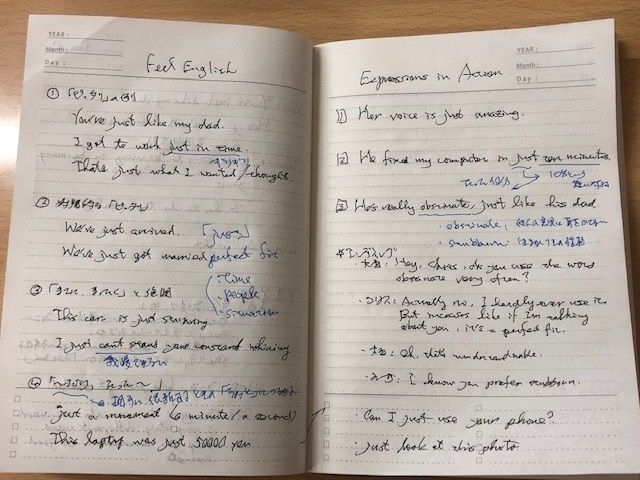 YEAR :
Month :
Day :
Feel English
① 「ピッタリ」の例
You're just like my dad.
I got to work just in time
ギリギリ
That's just what I wanted / thought
② 時間的な
We've just arrived. 「just」
We've just got married perfect fit
・time
・people
・situation
③ と強調
This car is just stunning
I just can't stand your constant whining
我慢できない
④
just a moment (a minute / a second)
This laptop was just 50000 yen
YEAR :
Month :
Day :
Expressions in Action
1 Her voice is just amazing.
2 He fixed my computer in just ten minutes.
たった10分
3 He's really obstinate, just like his dad
・obstinate :
・stubborn :
大西 : Hey, Chris, do you use the word
obstinate very often?
・クリス : Actually no, I hardly ever use it.
But in cases like if I'm talking
about you, it's a perfect fit.
・大西 : Oh, that's understandable.
I know you prefer stubborn.
・Can I just use your phone?
・Just look at this photo